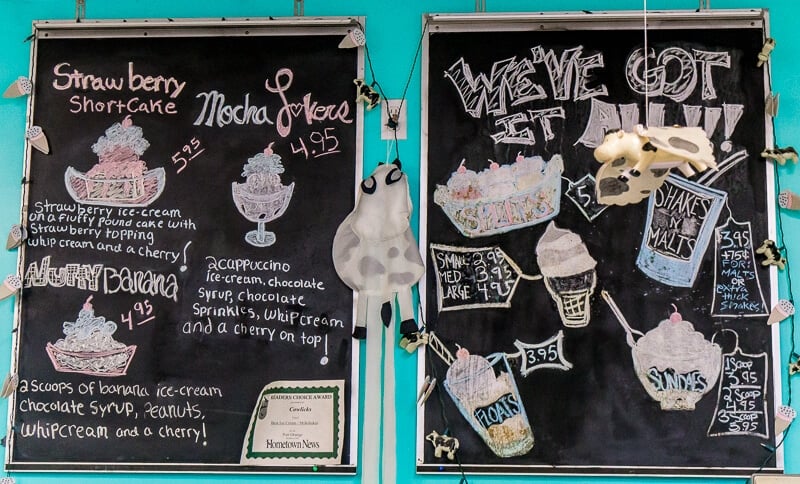 Strawberry
Shortcake
5.95
Strawberry ice-cream
on a fluffy pound cake with
Strawberry topping
whip cream and a cherry!
Mocha Lovers
4.95
2 cappuccino
ice-cream, chocolate
syrup, chocolate
Sprinkles, whipcream
and a cherry on top!
Nutty Banana
4.95
2 scoops of banana ice-cream
chocolate syrup, peanuts,
whipcream and a cherry!
READERS CHOICE AWARD
Cowlicks
Best Ice Cream / Milkshakes
Port Orange
Hometown News
WE'VE GOT
IT All!!!
SPLITS
5.
SHAKES
'N'
MALTS
3.95
+75¢
FOR
MALTS
OR
extra
thick
SHAKES!
SMALL 2.95
MED 3.95
LARGE 4.95
FLOATS
3.95
SUNDAES
1 Scoop
3.95
2 Scoop
4.95
3 Scoop
5.95